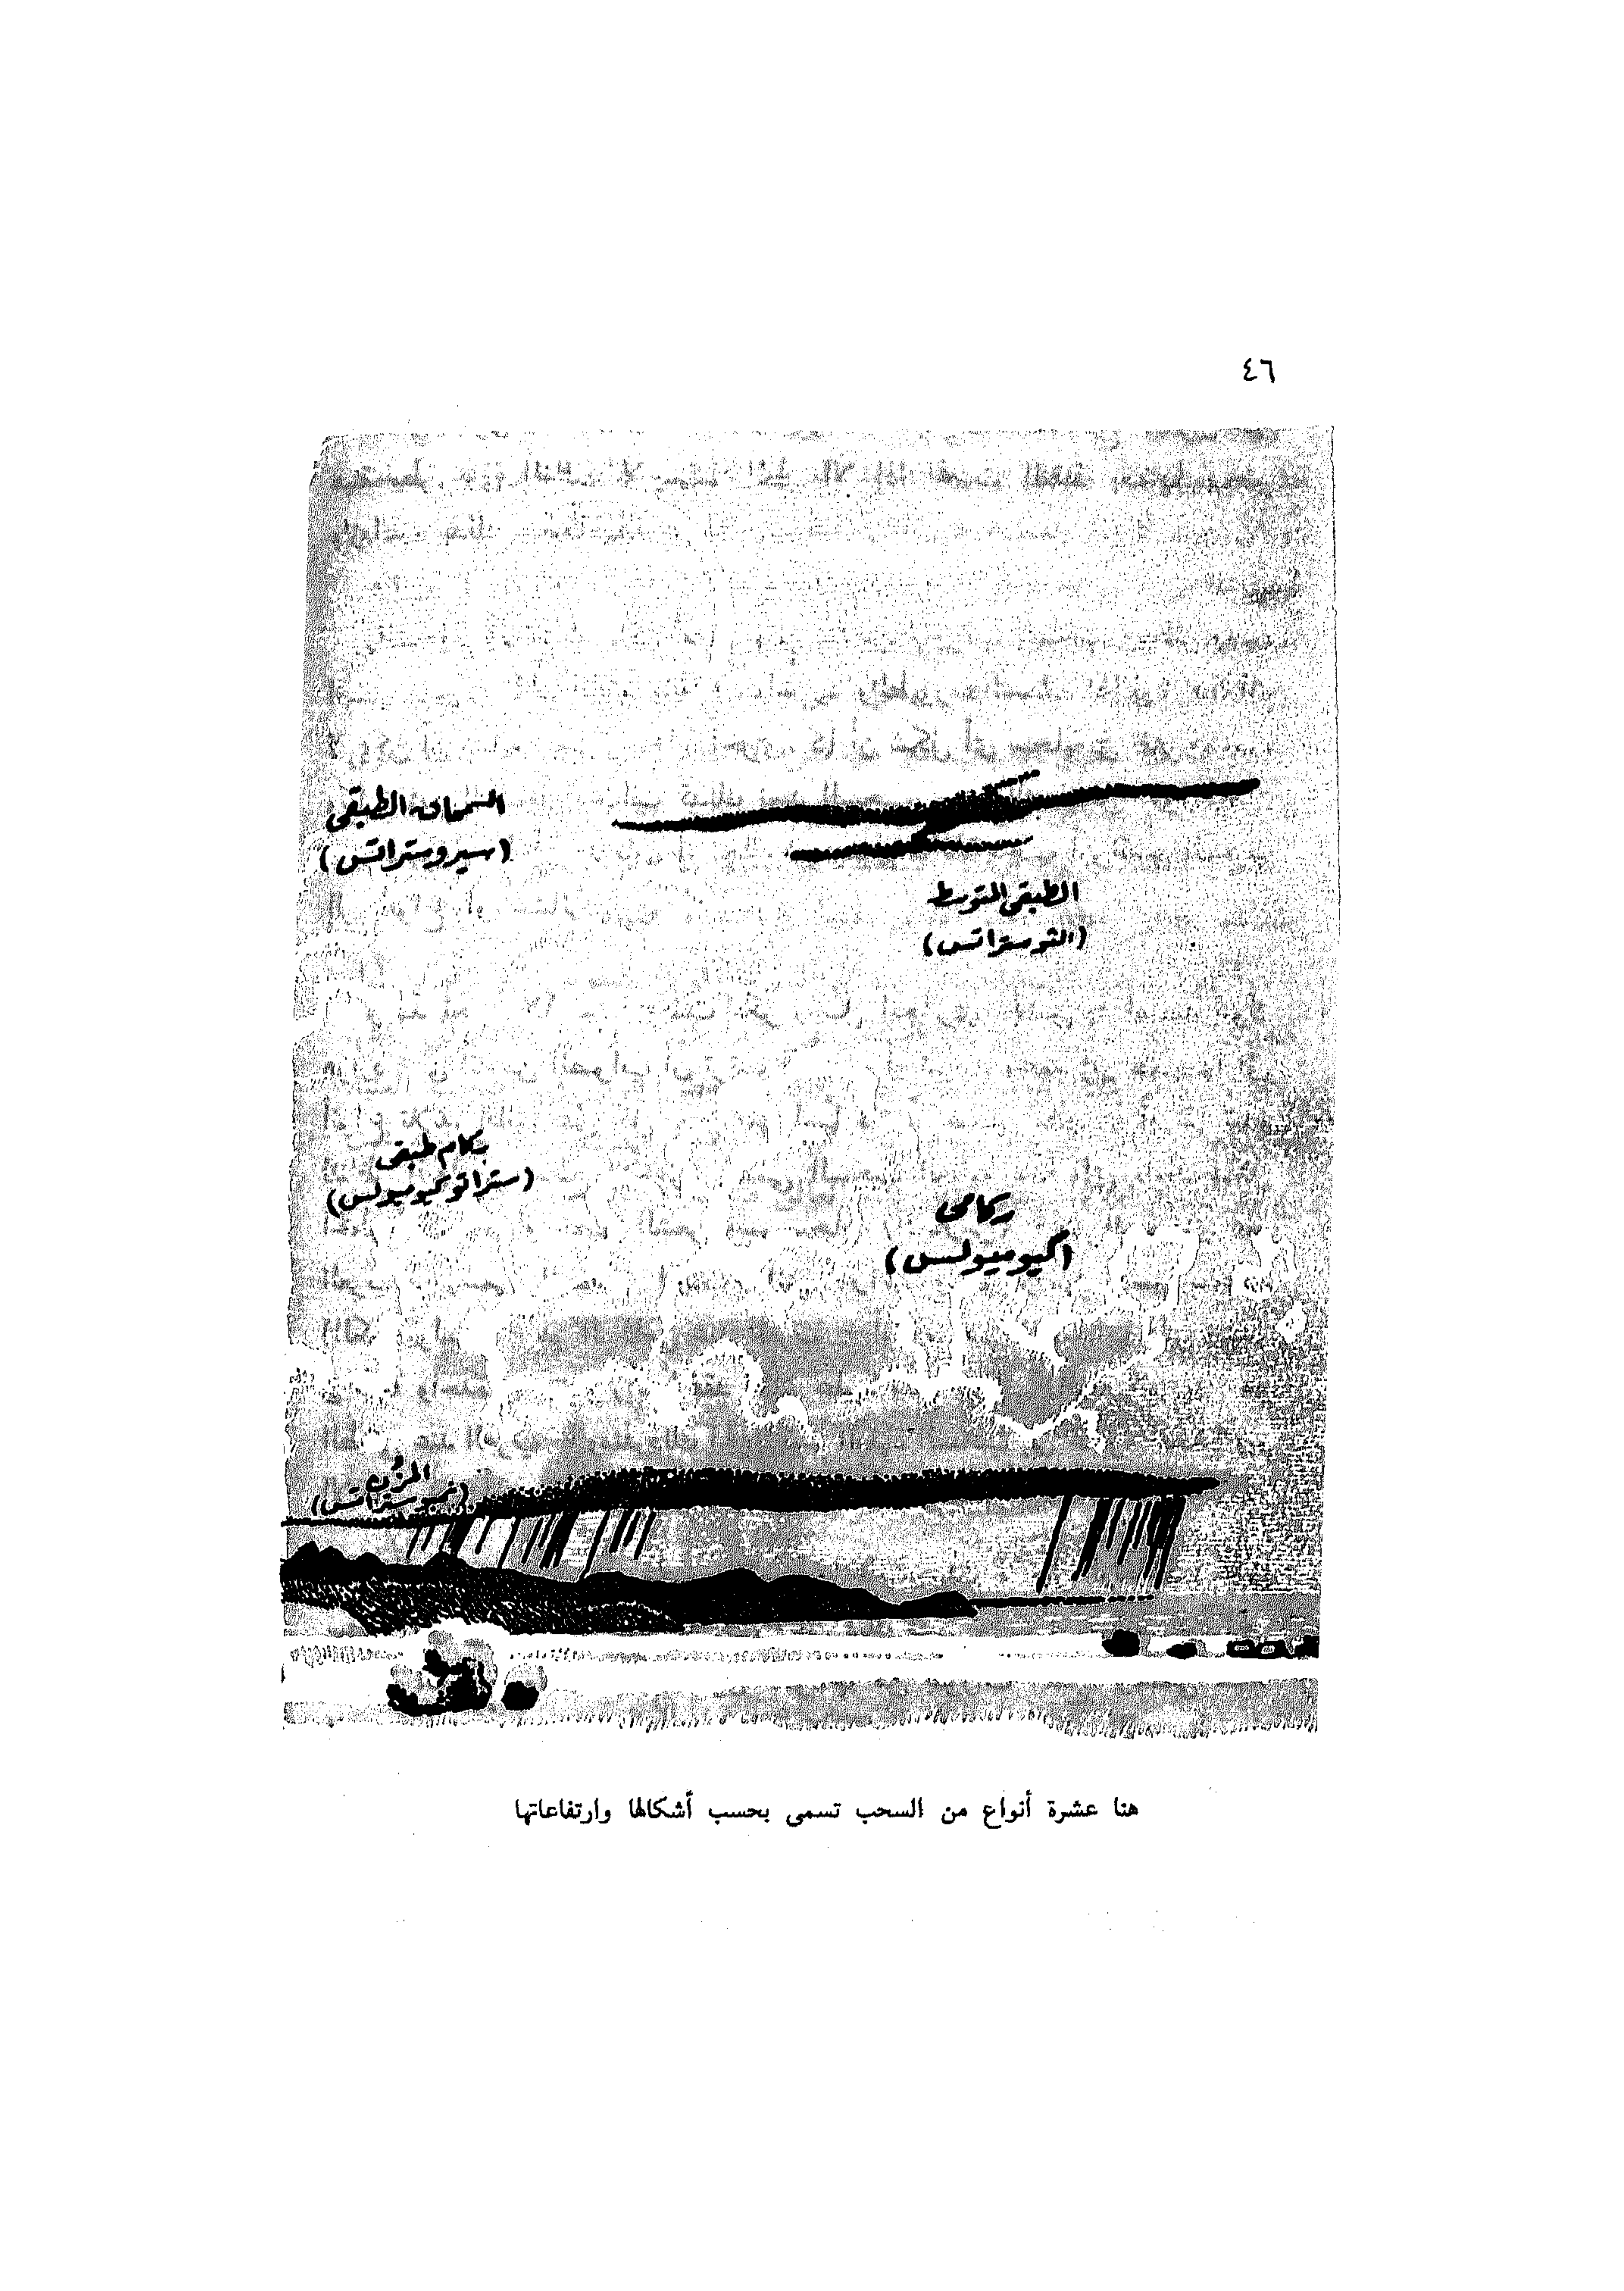 ٤٦
السمحاق الطبقى
(سيروستراتس)
الطبقى المتوسط
(التوستراتس)
ركام طبقى
(ستراتوكيوميولس)
ركامى
(كيوميولس)
المزن
(نمبوستراتس)
هنا عشرة أنواع من السحب تسمى بحسب أشكالها وارتفاعاتها